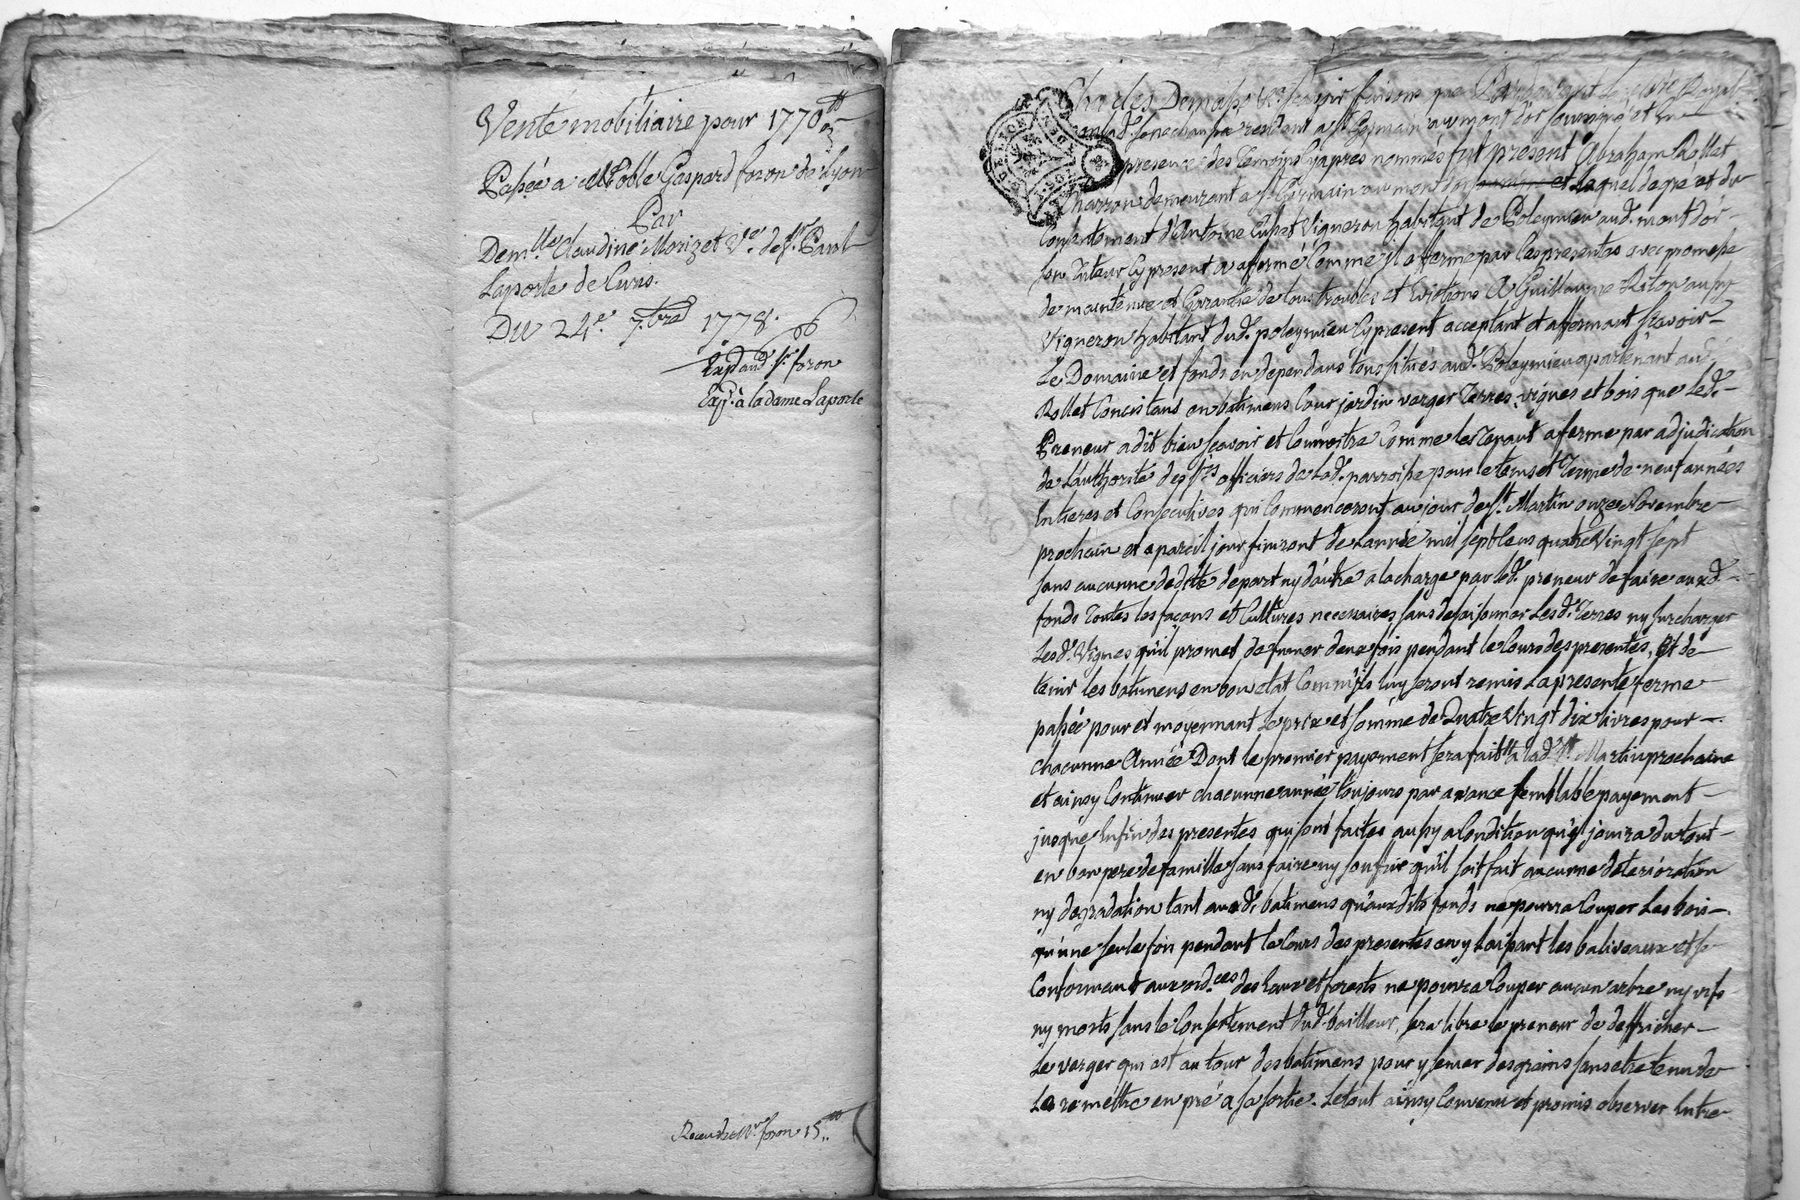 Vente mobiliaire pour 1770tt
Passée a Noble Gaspard foron de Lyon
Par
Demlle Claudine Morizet Ve. de Sr. Paul
Laporte de Curis.
Du 24e. 7.bre 1778.
Expd aud. Sr. foron
Exp. à la dame Laporte
Receu de Mr. foron 15tt
Par devant le No.re Royal
resident a St. Germain au mont d'or soussigné et en
presence des Temoins Cyapres nommés fut present Abraham Rollet
Charron demeurant a St. Germain au mont dor Lequel de gré et du
Consentement d'Antoine Vigneron habitant de Poleymieu aud. mont d'or
son Tuteur Cy present a affermé Comme Il afferme par les presentes avec promesse
de maintenue et Garantie de tous troubles et Evictions A Guillaume Riton aussy
Vigneron habitant dud. poleymieu Cy present acceptant et affermant scavoir
Le Domaine et fonds en dependans tous situés aud. Poleymieu apartenant aud.
Rollet Concistant en batimens Cour jardin verger Terres vignes et bois que Led.
Preneur a dit bien scavoir et Connoitre Comme les Tenant a ferme par adjudication
de Lauthorité des Srs officiers de Lad. parroisse pour le tems et Terme de neuf années
Entieres et Consecutives qui Commenceront au jour de St. Martin onze Novembre
prochain et a pareil jour finiront de Lannée mil sept Cens quatre Vingt sept
sans aucunne dedite de part ny d'autre a la charge par led. preneur de faire auxd.
fonds Toutes les façons et Cultures necessaires sans desaisonner Lesd. Terres ny surcharger
Lesd. Vignes qu'il promet de fumer deux fois pendant le Cours des presentes, Et de
tenir les batimens en bon etat Comm'ils luy seront remis La presente ferme
passée pour et moyennant Le prix et somme de Quatre Vingt dix livres pour
chacunne Année Dont le premier payement sera fait a lad. St. Martin prochaine
et ainsy Continuer chacunne année toujours par avance semblable payement
jusque Enfin des presentes qui sont faites aussy a Condition qu'il jouira du tout
en bon pere de famille sans faire ny souffrir qu'il soit fait aucunne deterioration
ny degradation tant auxd. batimens qu'auxdits fonds ne pourra Couper Les bois
qu'une seule fois pendant le Cours des presentes en y Laissant les baliveaux et se
Conformant aux ord.ces des Eaux et forests ne pourra Couper aucun arbre ny vifs
ny morts sans le Consentement dud. bailleur, sera libre le preneur de deffricher
Le verger qui est au tour des batimens pour y semer des grains sans etre tenu de
Le remettre en pré a sa sortie. Le tout ainsy Convenu et promis observer Entre